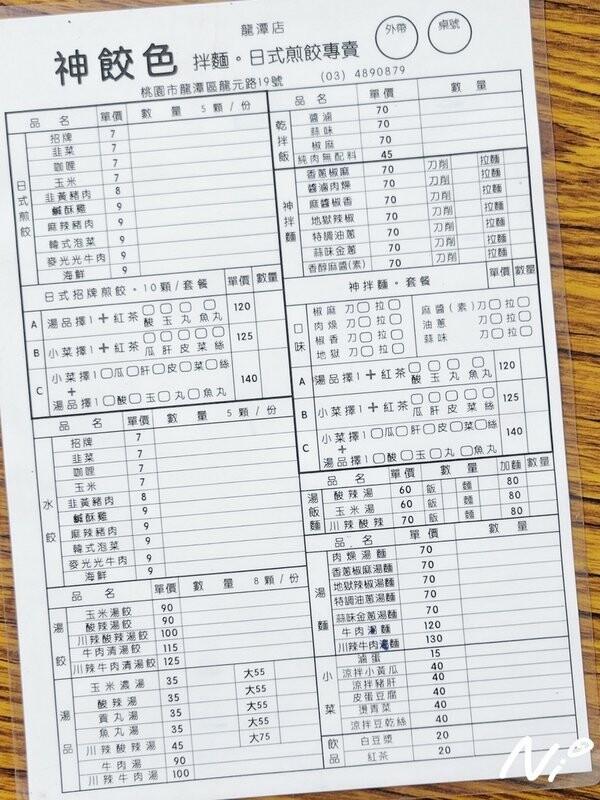 龍潭店
神餃色 拌麵。日式煎餃專賣
外帶
桌號
桃園市龍潭區龍元路19號 (03) 4890879
品名 單價 數量 5顆/份
日式煎餃
招牌 7
韭菜 7
咖哩 7
玉米 7
韭黃豬肉 8
鹹酥雞 9
麻辣豬肉 9
韓式泡菜 9
麥光光牛肉 9
海鮮 9
日式招牌煎餃。10顆/套餐 單價 數量
A 湯品擇1+紅茶 酸 玉 丸 魚丸 120
B 小菜擇1+紅茶 瓜 肝 皮 菜 絲 125
C 小菜擇1 瓜 肝 皮 菜 絲
+
湯品擇1 酸 玉 丸 魚丸 140
品名 單價 數量 5顆/份
水餃
招牌 7
韭菜 7
咖哩 7
玉米 7
韭黃豬肉 8
鹹酥雞 9
麻辣豬肉 9
韓式泡菜 9
麥光光牛肉 9
海鮮 9
品名 單價 數量 8顆/份
湯餃
玉米湯餃 90
酸辣湯餃 90
川辣酸辣湯餃 100
牛肉清湯餃 115
川辣牛肉清湯餃 125
湯品
玉米濃湯 35 大55
酸辣湯 35 大55
貢丸湯 35 大55
魚丸湯 35 大55
川辣酸辣湯 45 大75
牛肉湯 90
川辣牛肉湯 100
品名 單價 數量
乾拌飯
醬滷 70
蒜味 70
椒麻 70
純肉無配料 45
神拌麵
香蔥椒麻 70 刀削 拉麵
醬滷肉燥 70 刀削 拉麵
麻醬椒香 70 刀削 拉麵
地獄辣椒 70 刀削 拉麵
特調油蔥 70 刀削 拉麵
蒜味金蔥 70 刀削 拉麵
香醇麻醬(素) 70 刀削 拉麵
神拌麵。套餐 單價 數量
口味
椒麻 刀 拉 麻醬(素) 刀 拉
肉燥 刀 拉 油蔥 刀 拉
椒香 刀 拉 蒜味 刀 拉
地獄 刀 拉
A 湯品擇1+紅茶 酸 玉 丸 魚丸 120
B 小菜擇1+紅茶 瓜 肝 皮 菜 絲 125
C 小菜擇1 瓜 肝 皮 菜 絲
+
湯品擇1 酸 玉 丸 魚丸 140
品名 單價 數量 加麵 數量
湯飯麵
酸辣湯 60 飯 麵 80
玉米湯 60 飯 麵 80
川辣酸辣 70 飯 麵 80
品名 單價 數量
湯麵
肉燥湯麵 70
香蔥椒麻湯麵 70
地獄辣椒湯麵 70
特調油蔥湯麵 70
蒜味金蔥湯麵 70
牛肉湯麵 120
川辣牛肉湯麵 130
小菜
滷蛋 15
涼拌小黃瓜 40
涼拌豬肝 40
皮蛋豆腐 40
燙青菜 40
涼拌豆乾絲 40
飲品
白豆漿 20
紅茶 20
Ni